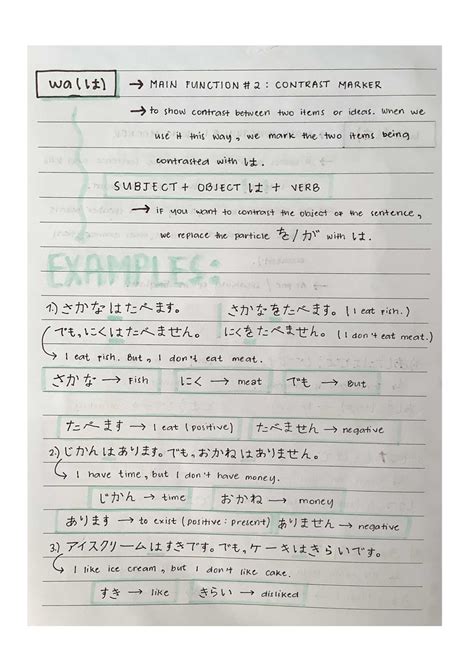 wa (は) → MAIN FUNCTION #2 : CONTRAST MARKER
→ to show contrast between two items or ideas. when we
use it this way, we mark the two items being
contrasted with は.
SUBJECT + OBJECT は + VERB
→ if you want to contrast the object of the sentence,
we replace the particle を/が with は.
EXAMPLES:
1.) さかなはたべます。 さかなをたべます。 (I eat fish.)
でも,にくはたべません。 にくをたべません。 (I don't eat meat.)
→ I eat fish. But, I don't eat meat.
さかな → Fish にく → meat でも → But
たべます → I eat (positive) たべません → negative
2.) じかんはあります。でも,おかねはありません。
→ I have time, but I don't have money.
じかん → time おかね → money
あります → to exist (positive: present) ありません → negative
3.) アイスクリームはすきです。でも,ケーキはきらいです。
→ I like ice cream, but I don't like cake.
すき → like きらい → disliked